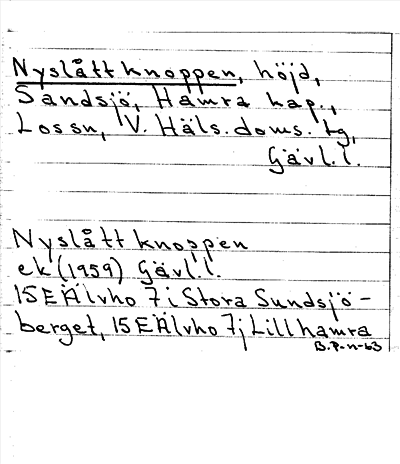 Nyslåttknoppen, höjd,
Sandsjö, Hamra kap.,
Lossn, V. Häls. doms. tg,
Gävl. l.
Nyslåttknoppen
ek (1959) Gävl. l.
15EÄlvho 7i Stora Sundsjö-
berget, 15EÄlvho 7j Lillhamra
B. P-n-63